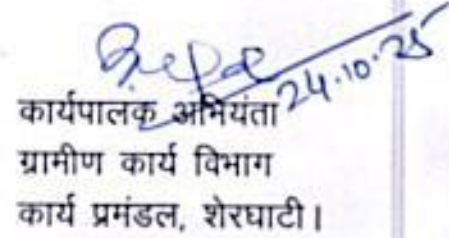 24.10.25
कार्यपालक अभियंता
ग्रामीण कार्य विभाग
कार्य प्रमंडल, शेरघाटी।